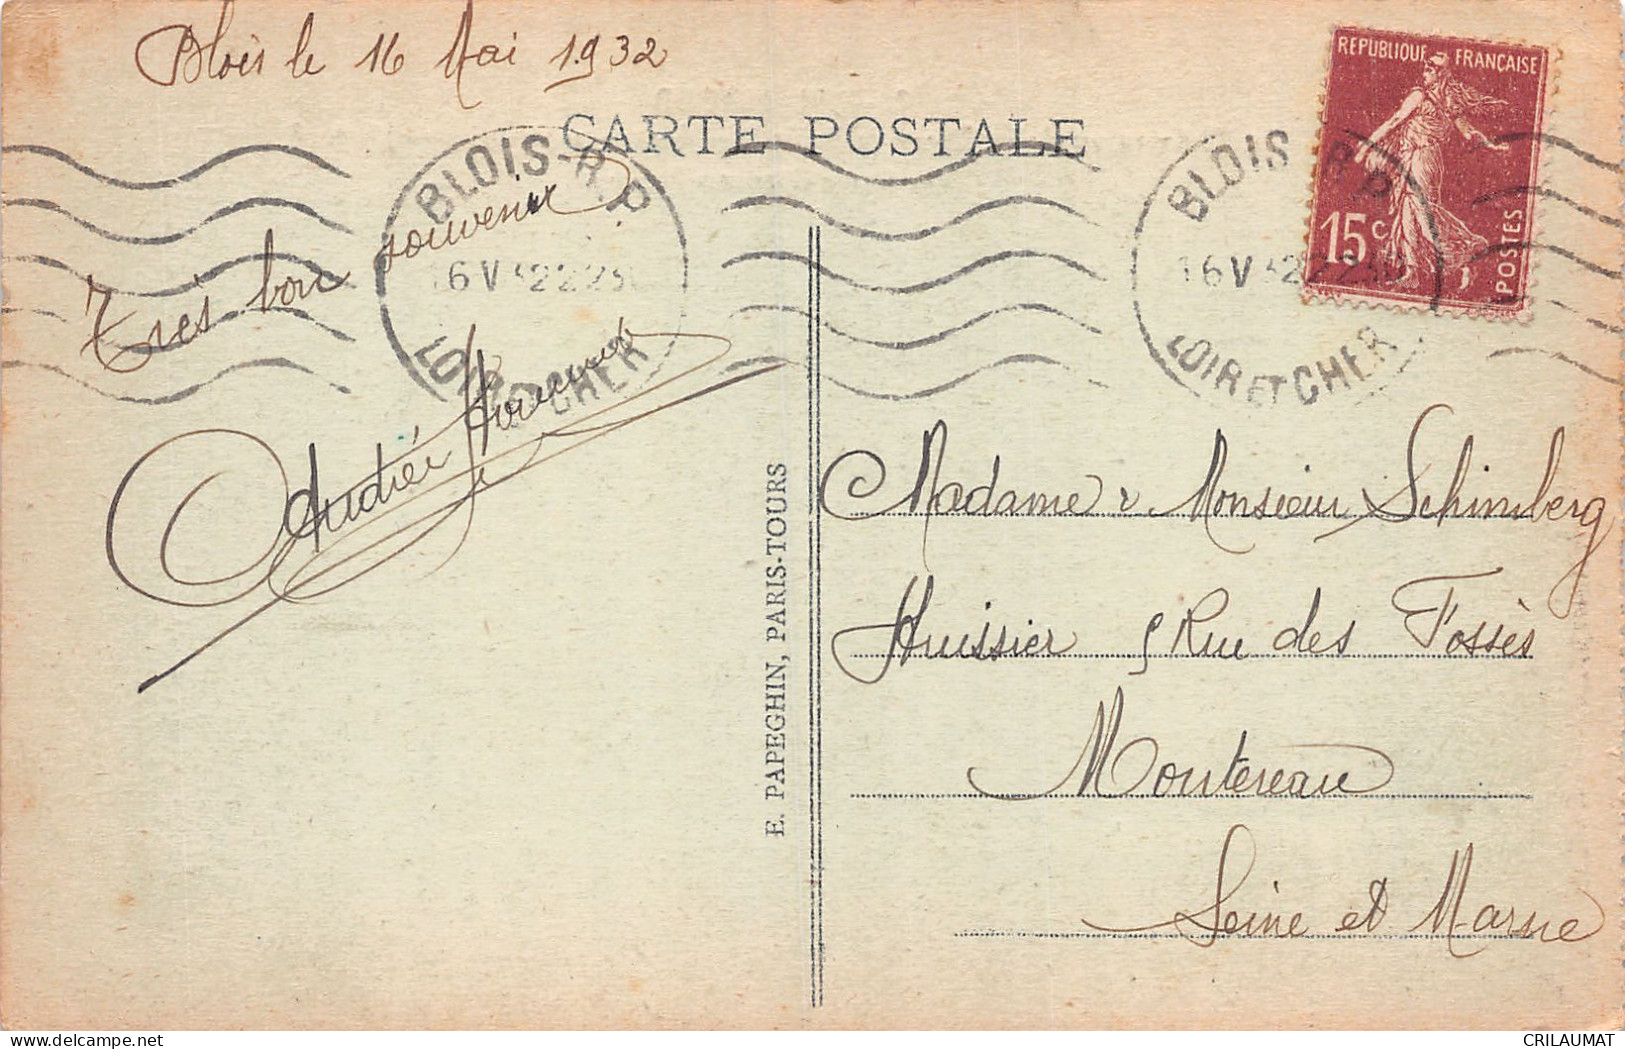 Blois le 16 Mai 1932
CARTE POSTALE
REPUBLIQUE FRANÇAISE
15c
POSTES
BLOIS-R.P
6 V 32 22
LOIR ET CHER
BLOIS R.P
16 V 32 22
LOIR ET CHER
Très bon souvenir
Andrée
E. PAPEGHIN, PARIS-TOURS
Madame & Monsieur Schimberg
Huissier 5 Rue des Fossés
Montereau
Seine et Marne
delcampe.net
CRILAUMAT